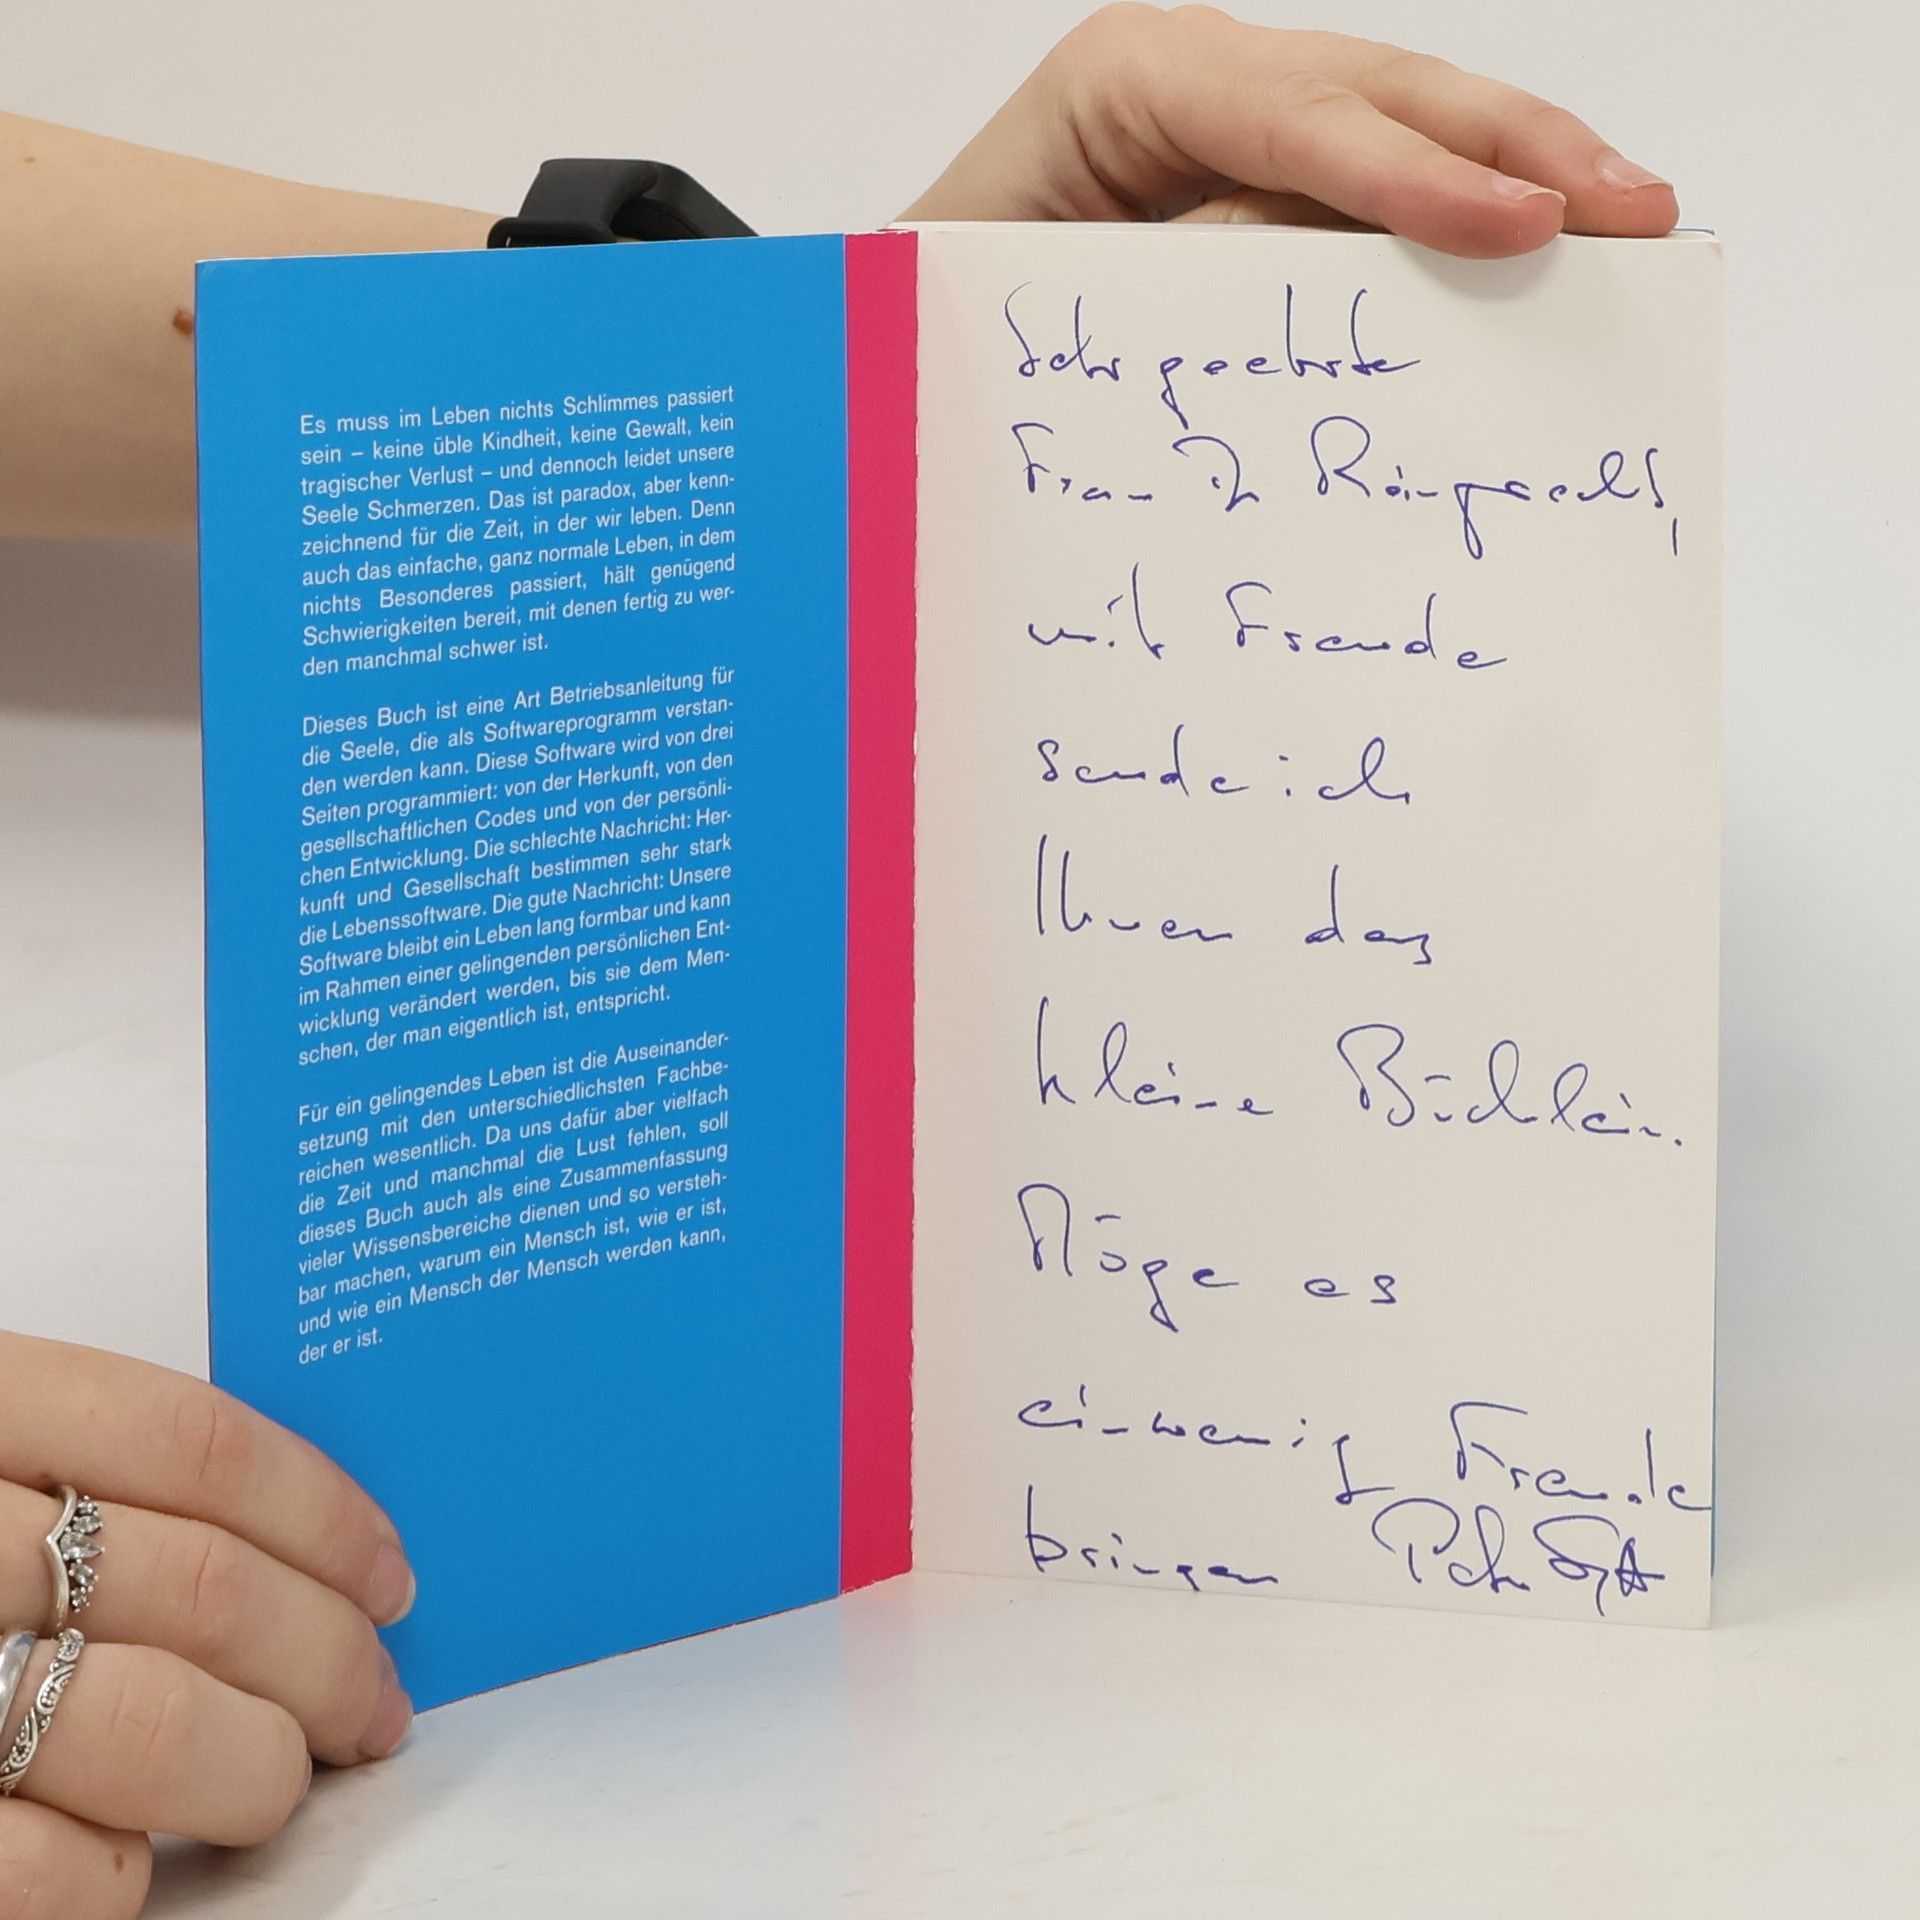 Es muss im Leben nichts Schlimmes passiert
sein – keine üble Kindheit, keine Gewalt, kein
tragischer Verlust – und dennoch leidet unsere
Seele Schmerzen. Das ist paradox, aber kenn-
zeichnend für die Zeit, in der wir leben. Denn
auch das einfache, ganz normale Leben, in dem
nichts Besonderes passiert, hält genügend
Schwierigkeiten bereit, mit denen fertig zu wer-
den manchmal schwer ist.
Dieses Buch ist eine Art Betriebsanleitung für
die Seele, die als Softwareprogramm verstan-
den werden kann. Diese Software wird von drei
Seiten programmiert: von der Herkunft, von den
gesellschaftlichen Codes und von der persönli-
chen Entwicklung. Die schlechte Nachricht: Her-
kunft und Gesellschaft bestimmen sehr stark
die Lebenssoftware. Die gute Nachricht: Unsere
Software bleibt ein Leben lang formbar und kann
im Rahmen einer gelingenden persönlichen Ent-
wicklung verändert werden, bis sie dem Men-
schen, der man eigentlich ist, entspricht.
Für ein gelingendes Leben ist die Auseinander-
setzung mit den unterschiedlichsten Fachbe-
reichen wesentlich. Da uns dafür aber vielfach
die Zeit und manchmal die Lust fehlen, soll
dieses Buch auch als eine Zusammenfassung
vieler Wissensbereiche dienen und so versteh-
bar machen, warum ein Mensch ist, wie er ist,
und wie ein Mensch der Mensch werden kann,
der er ist.
Sehr geehrte
Frau
mit Freude
sende ich
Ihnen das
kleine Büchlein.
Möge es
ein wenig Freude
bringen